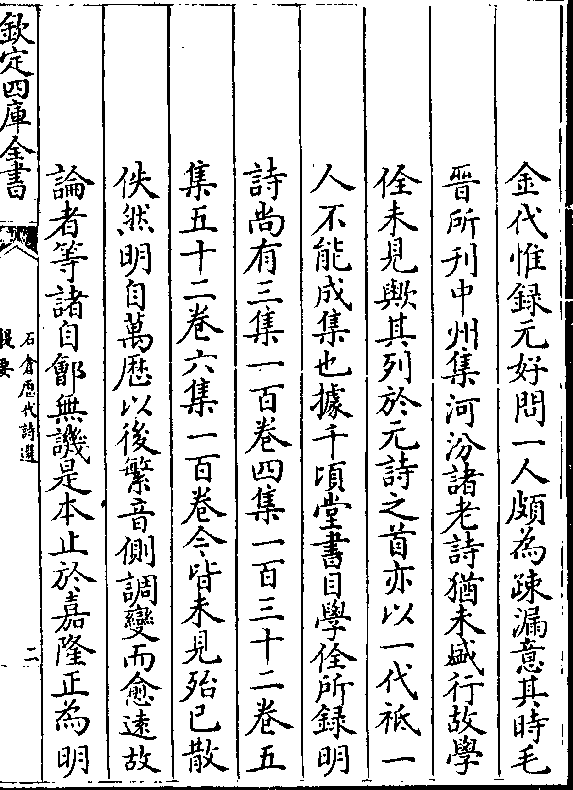 金代惟録元好問一人頗為疎漏意其時毛
晉所刊中州集河汾諸老詩猶未盛行故學
佺未見歟其列於元詩之首亦以一代祗一
人不能成集也據千頃堂書目學佺所録明
詩尚有三集一百卷四集一百三十二卷五
集五十二卷六集一百卷今皆未見殆已散
佚然明自萬厯以後繁音側調變而愈逺故
論者等諸自鄶無譏是本止於嘉隆正為明
欽定四庫全書
石倉歴代詩選
提要
二